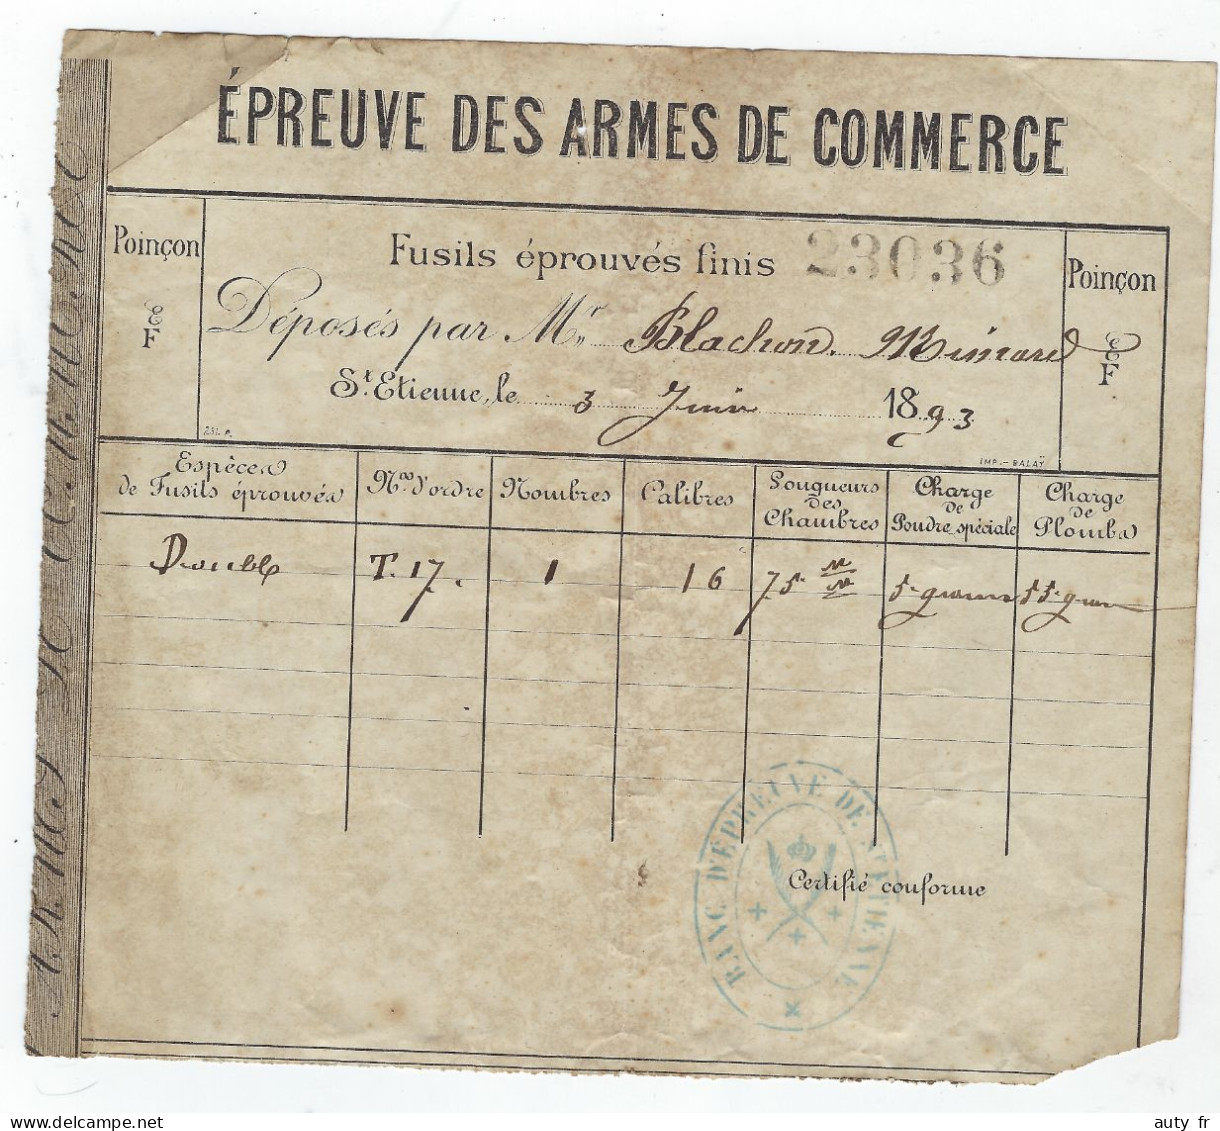 ÉPREUVE DES ARMES DE COMMERCE
Poinçon
F
Fusils éprouvés finis 23036
Déposés par Mr Blachon. Mimard
St Etienne, le 3 Juin 1893
Poinçon
F
IMP.-BALAŸ
Espèces de Fusils éprouvés
Nos d'ordre
Nombres
Calibres
Longueurs des Chambres
Charge de Poudre spéciale
Charge de Plombs
Double T. 17. 1 16 75 m/m 5 grammes 55 gram
BANC D'ÉPREUVE DE ST ETIENNE
Certifié conforme
ARMES DE COMMERCE
auty fr